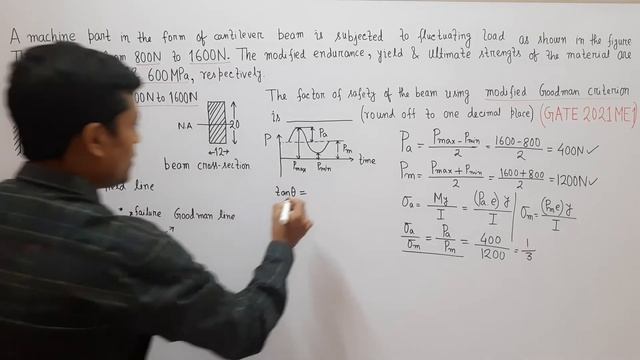 A machine part in the form of cantilever beam is subjected to fluctuating load as shown in the figure
800N to 1600N. The modified endurance, yield & ultimate strengts of the material are
600 MPa, respectively.
The factor of safety of the beam using modified Goodman criterion
is __________ (round off to one decimal place) (GATE 2021 ME)
N to 1600N
N.A
20
12
beam cross-section
line
failure Goodman line
P
Pa
Pm
Pmax
Pmin
time
tanθ =
Pa = Pmax - Pmin / 2 = 1600 - 800 / 2 = 400N ✓
Pm = Pmax + Pmin / 2 = 1600 + 800 / 2 = 1200N ✓
σa = My / I = (Pa.e) y / I | σm = (Pm e) y / I
σa / σm = Pa / Pm = 400 / 1200 = 1 / 3